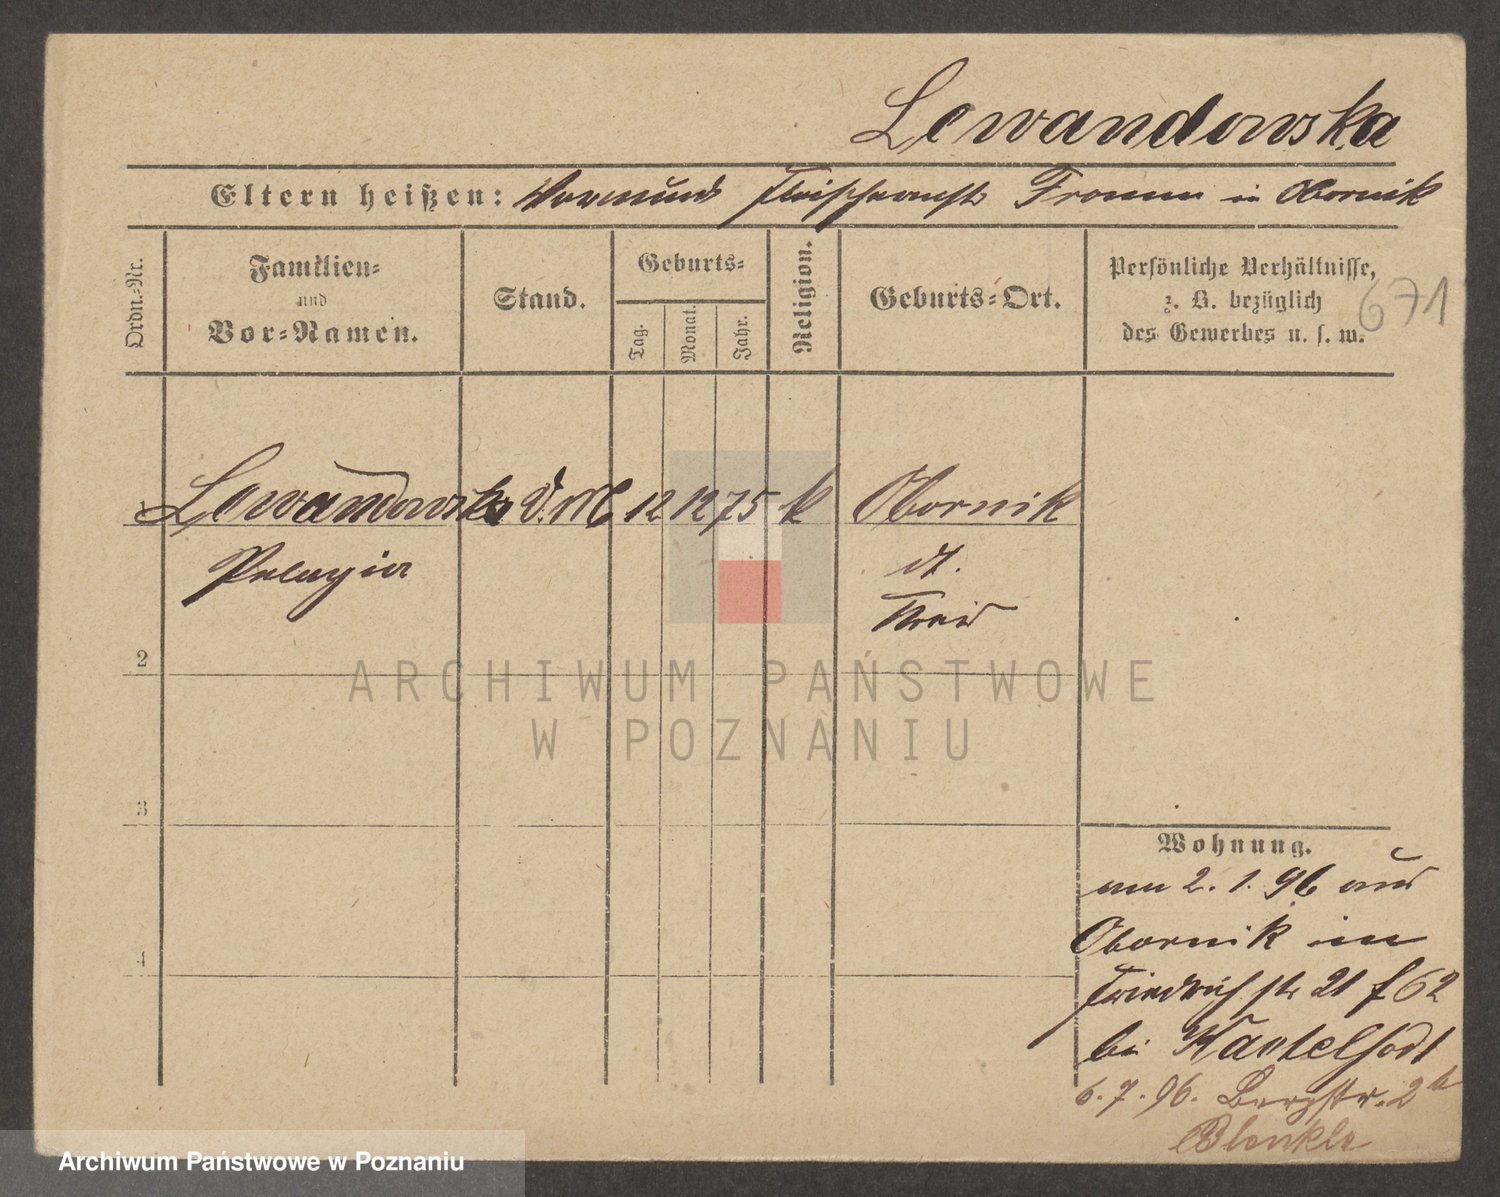 Lewandowska
Eltern heißen: Vormund Fleischermstr Fromm in Obornik
Ordn.-Nr.
Familien-
und
Vor-Namen.
Stand.
Geburts-
Tag.
Monat.
Jahr.
Religion.
Geburts-Ort.
Persönliche Verhältnisse,
z. B. bezüglich
des Gewerbes u. s. w.
671
1 Lewandowska 12 12 75 k Obornik
Pelagia
dt.
Kreis
2
ARCHIWUM PAŃSTWOWE
W POZNANIU
3
Wohnung.
am 2. 1. 96 aus
4
Obornik in
Friedrichstr 21 f 62
bei Kantelsodt
6. 7. 96. Bergstr. 2b
Blenkle
Archiwum Państwowe w Poznaniu